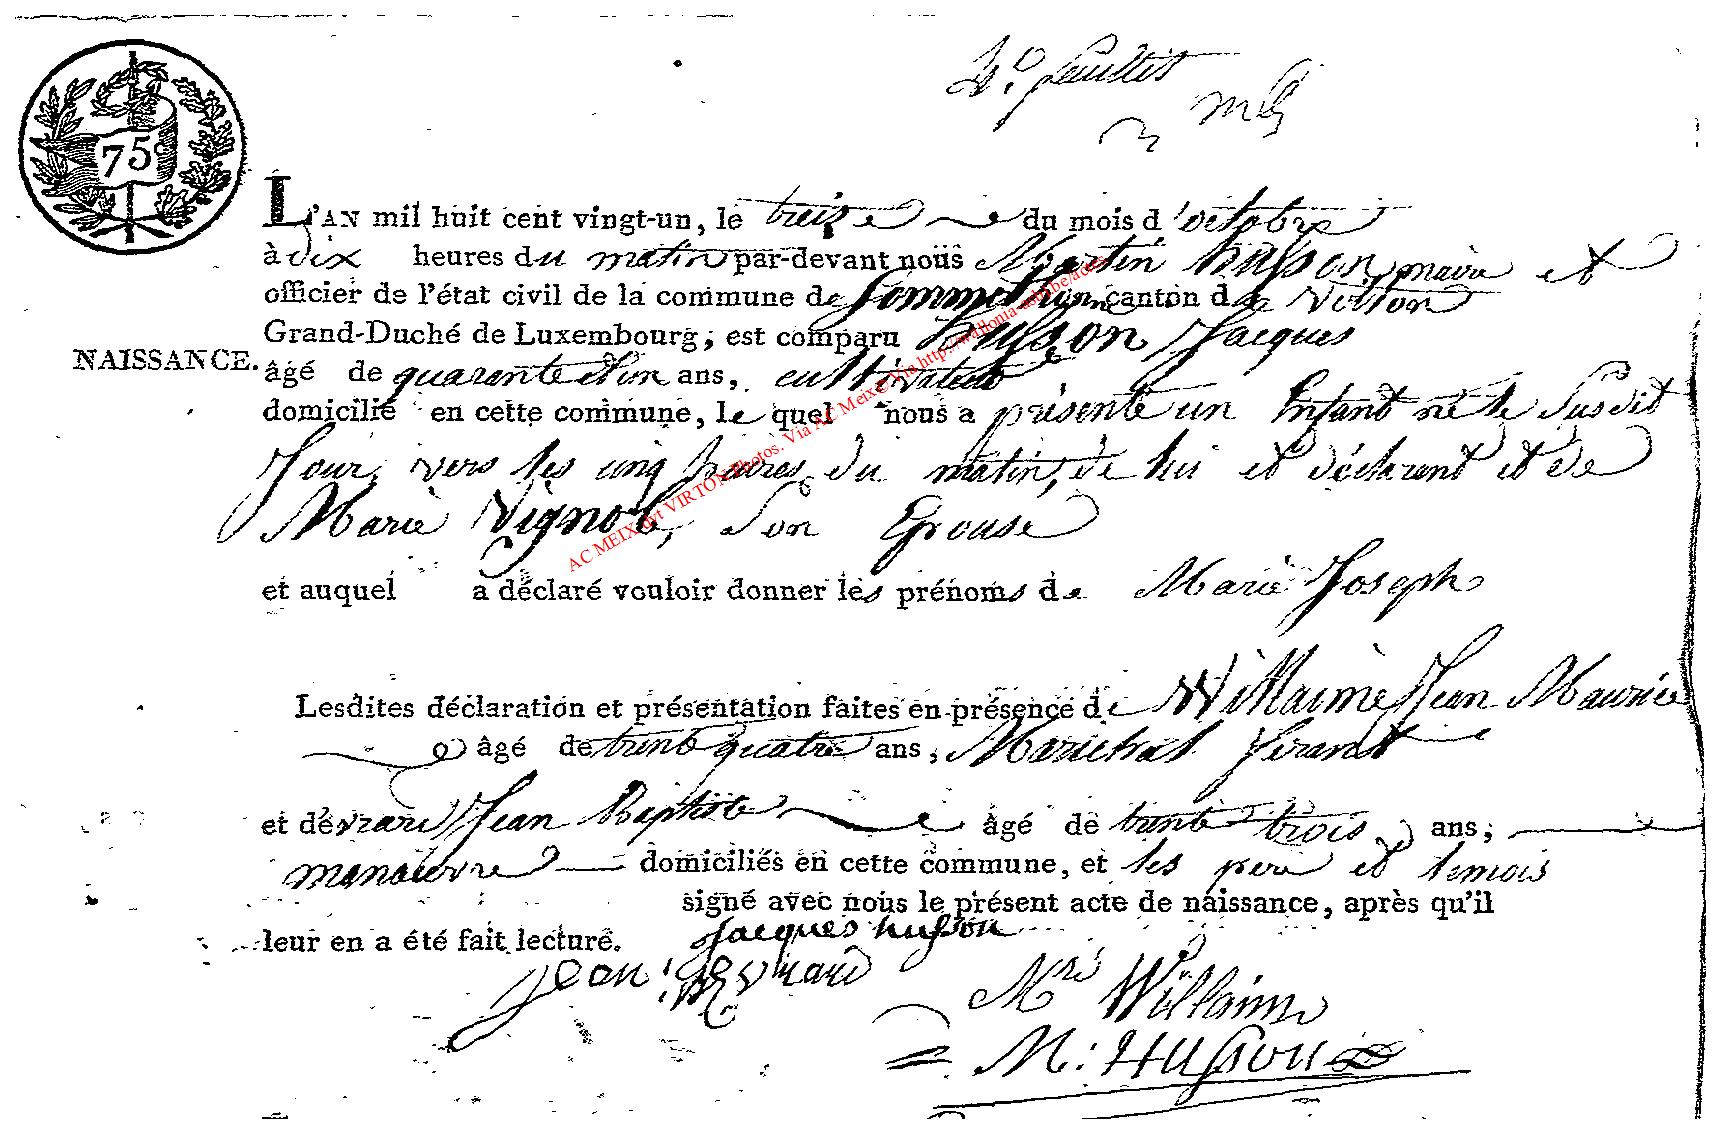 4e. feuillet
75
L'AN mil huit cent vingt-un, le treize du mois d'octobre
à dix heures du matin par-devant nous Martin husson, maire et
officier de l'état civil de la commune de Sommethonne canton de Virton
Grand-Duché de Luxembourg; est comparu Husson Jacques
NAISSANCE.
âgé de quarante et un ans, cultivateur
domicilié en cette commune, lequel nous a présenté un Enfant né le susdit
Jour, vers les cinq heures du matin, de lui et déclarent et de
Marie Vignol, son Epouse
et auquel a déclaré vouloir donner les prénoms de Marie Joseph
Lesdites déclaration et présentation faites en présence de Willaime Jean Maurice
âgé de trente quatre ans, Maréchal ferant
et de Jean Baptiste âgé de trente trois ans;
manoeuvre domiciliés en cette commune, et les pere et temois
signé avec nous le présent acte de naissance, après qu'il
leur en a été fait lecture. Jacques husson
jean
Mce Willaime
M: Husson
AC MEIX dvt VIRTON Photos. Via AC Meix